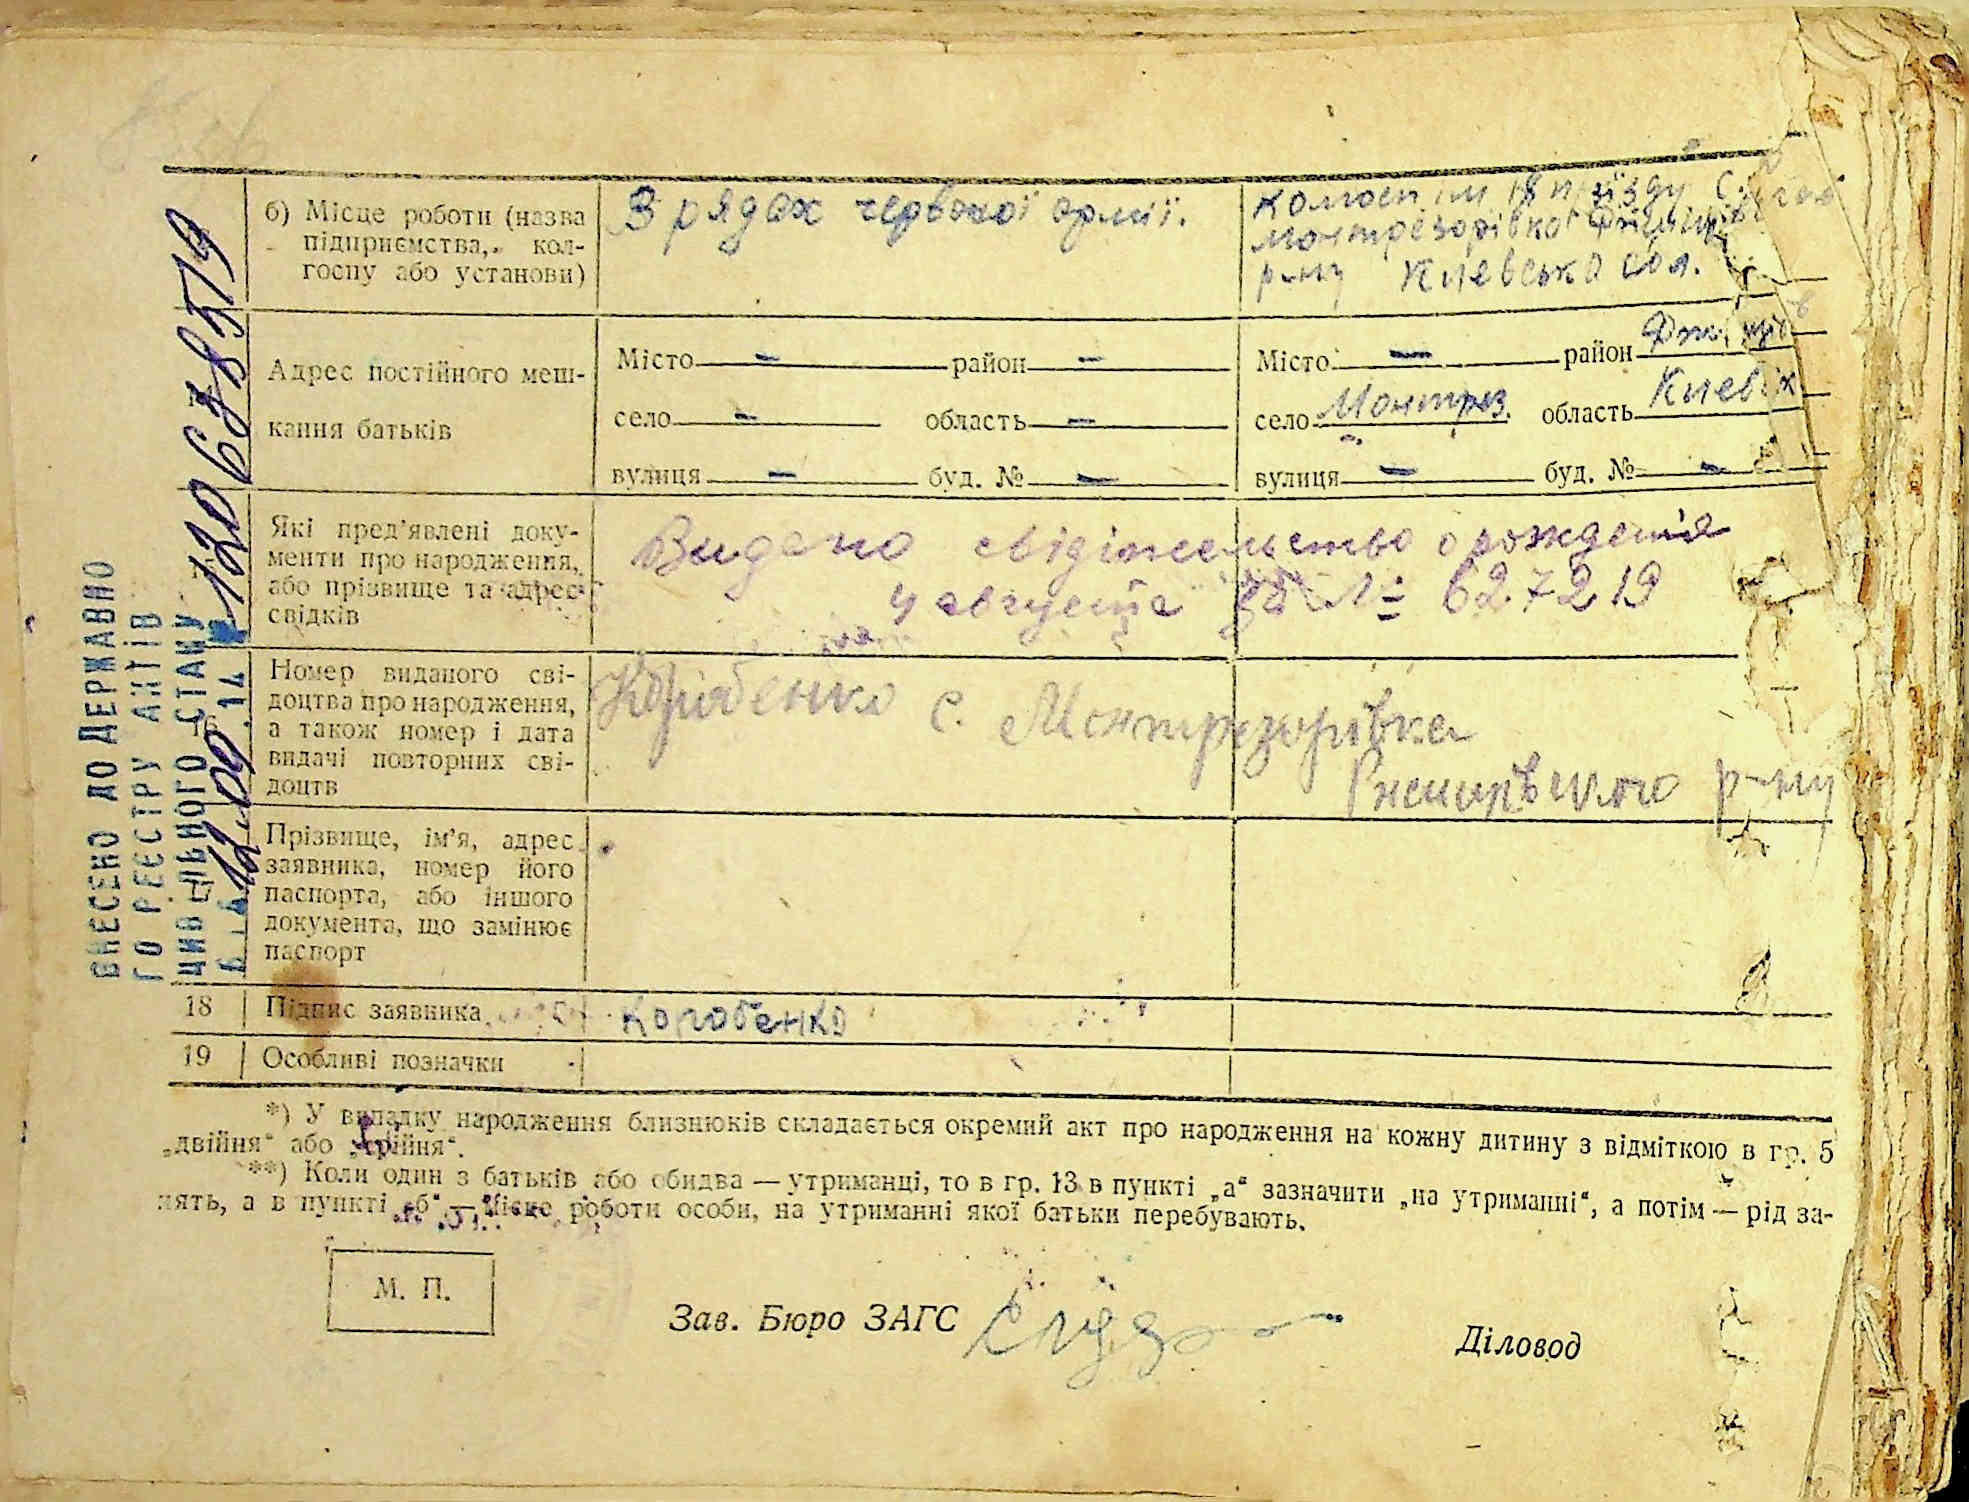 б) Місце роботи (назва
підприємства, кол-
госпу або установи)
З рядах червоної армії.
колгосп ім 18 пзїзду
монтрезорівка
р-ну Киевська обл.
Адрес постійного меш-
кання батьків
Місто — район —
село — область —
вулиця — буд. № —
Місто — район
село Монтрез. область Киевськ
вулиця — буд. № —
Які пред'явлені доку-
менти про народження,
або прізвище та адрес
свідків
Видано свідітельство о рождения
4 августа за № 627219
Номер виданого сві-
доцтва про народження,
а також номер і дата
видачі повторних сві-
доцтв
с. Монтрезорівка
р-ну
Прізвище, ім'я, адрес
заявника, номер його
паспорта, або іншого
документа, що замінює
паспорт
18 Підпис заявника Коробенко
19 Особливі позначки
*) У випадку народження близнюків складається окремий акт про народження на кожну дитину з відміткою в гр. 5
„двійня“ або „трійня“.
**) Коли один з батьків або обидва — утриманці, то в гр. 13 в пункті „а“ зазначити „на утриманні“, а потім — рід за-
нять, а в пункті „б“ — місце роботи особи, на утриманні якої батьки перебувають.
М. П.
Зав. Бюро ЗАГС
Діловод
ВНЕСЕНО ДО ДЕРЖАВНО
ГО РЕЄСТРУ АКТІВ
ЦИВІЛЬНОГО СТАНУ
12.09.14